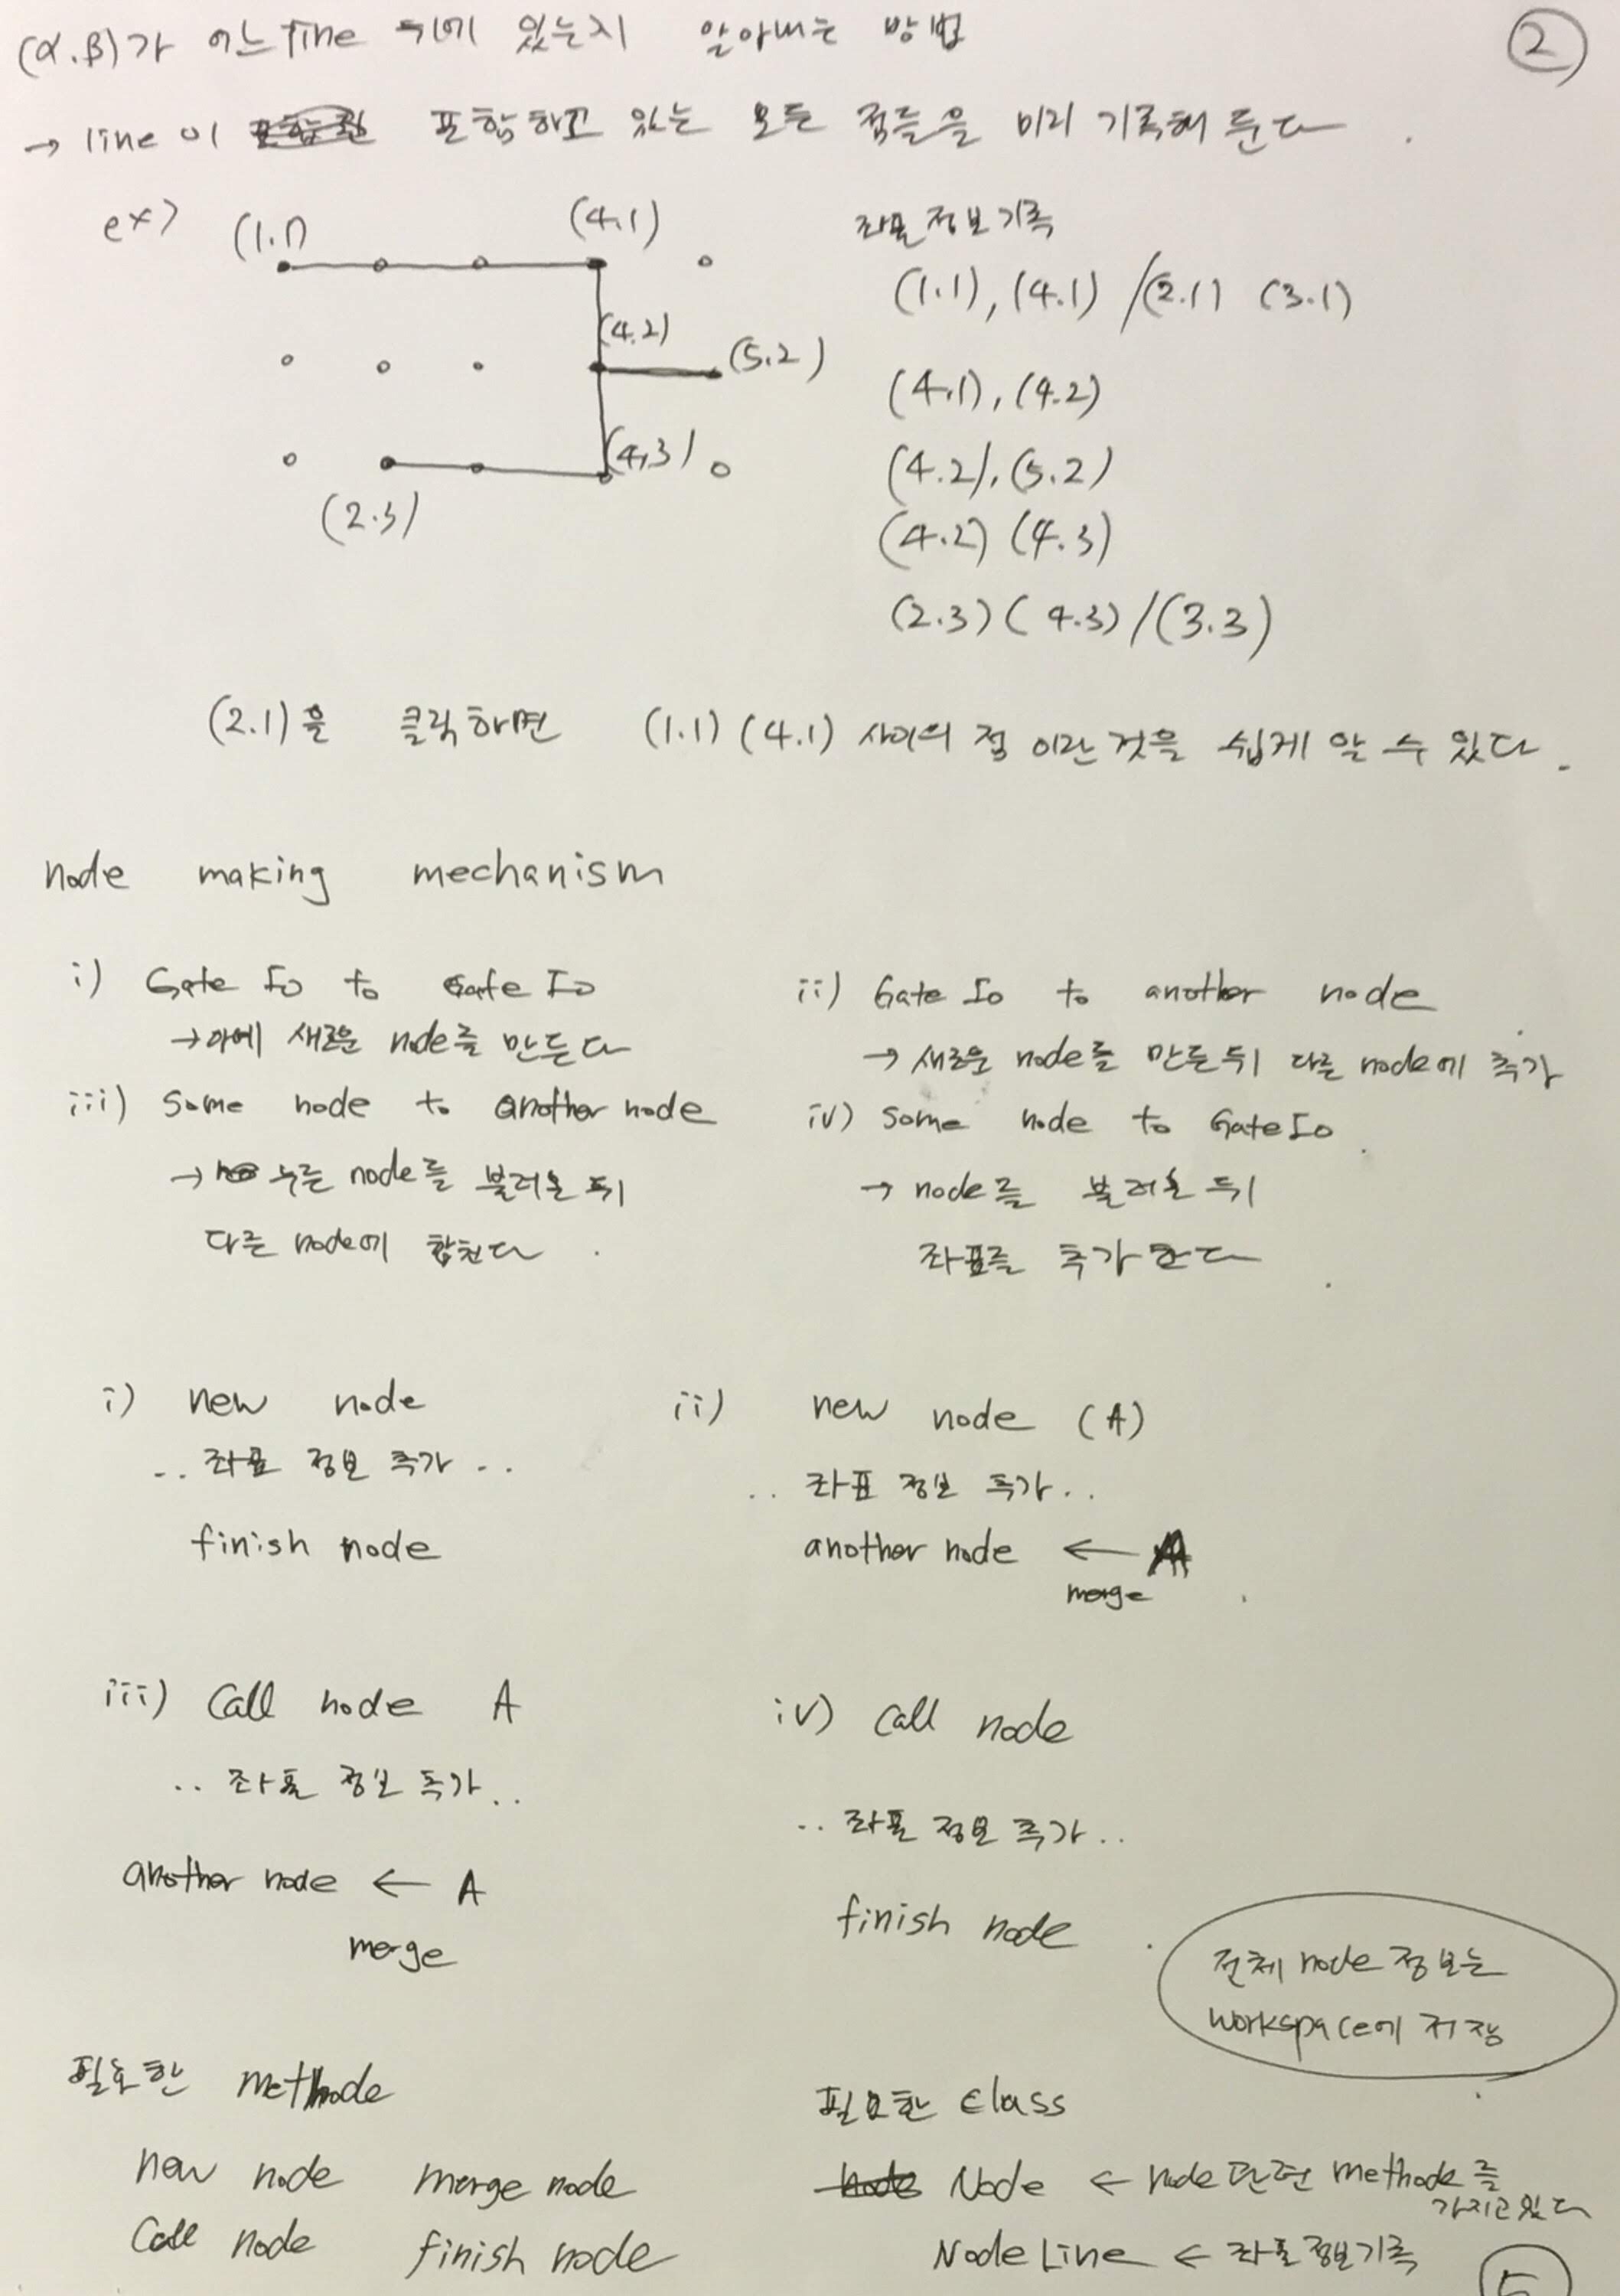 (α.β)가 어느 line 위에 있는지 알아내는 방법
②
→ line이 포함하고 있는 모든 점들을 미리 기록해 둔다.
ex) (1.1) (4.1)
(4.2)
(5.2)
(4,3)
(2.3)
좌표정보기록
(1.1), (4.1) / (2.1) (3.1)
(4.1), (4.2)
(4.2), (5.2)
(4.2) (4.3)
(2.3) (4.3) / (3.3)
(2.1)을 클릭하면 (1.1) (4.1) 사이의 점이란 것을 쉽게 알 수 있다.
node making mechanism
i) Gate Io to Gate Io
→ 아예 새로운 node를 만든다
ii) Gate Io to another node
→ 새로운 node를 만든 뒤 다른 node에 추가
iii) Some node to another node
→ 누른 node를 불러온 뒤
다른 node에 합친다.
iv) some node to Gate Io.
→ node를 불러온 뒤
좌표를 추가한다.
i) new node
.. 좌표 정보 추가 ..
finish node
ii) new node (A)
.. 좌표 정보 추가 ..
another node ← A
merge
iii) Call node A
.. 좌표 정보 추가 ..
another node ← A
merge
iv) Call node
.. 좌표 정보 추가 ..
finish node
전체 node 정보는
workspace에 저장
필요한 methode
new node merge node
Call node finish node
필요한 Class
Node ← node 관련 methode를
가지고 있다
Node Line ← 좌표정보기록
⑤